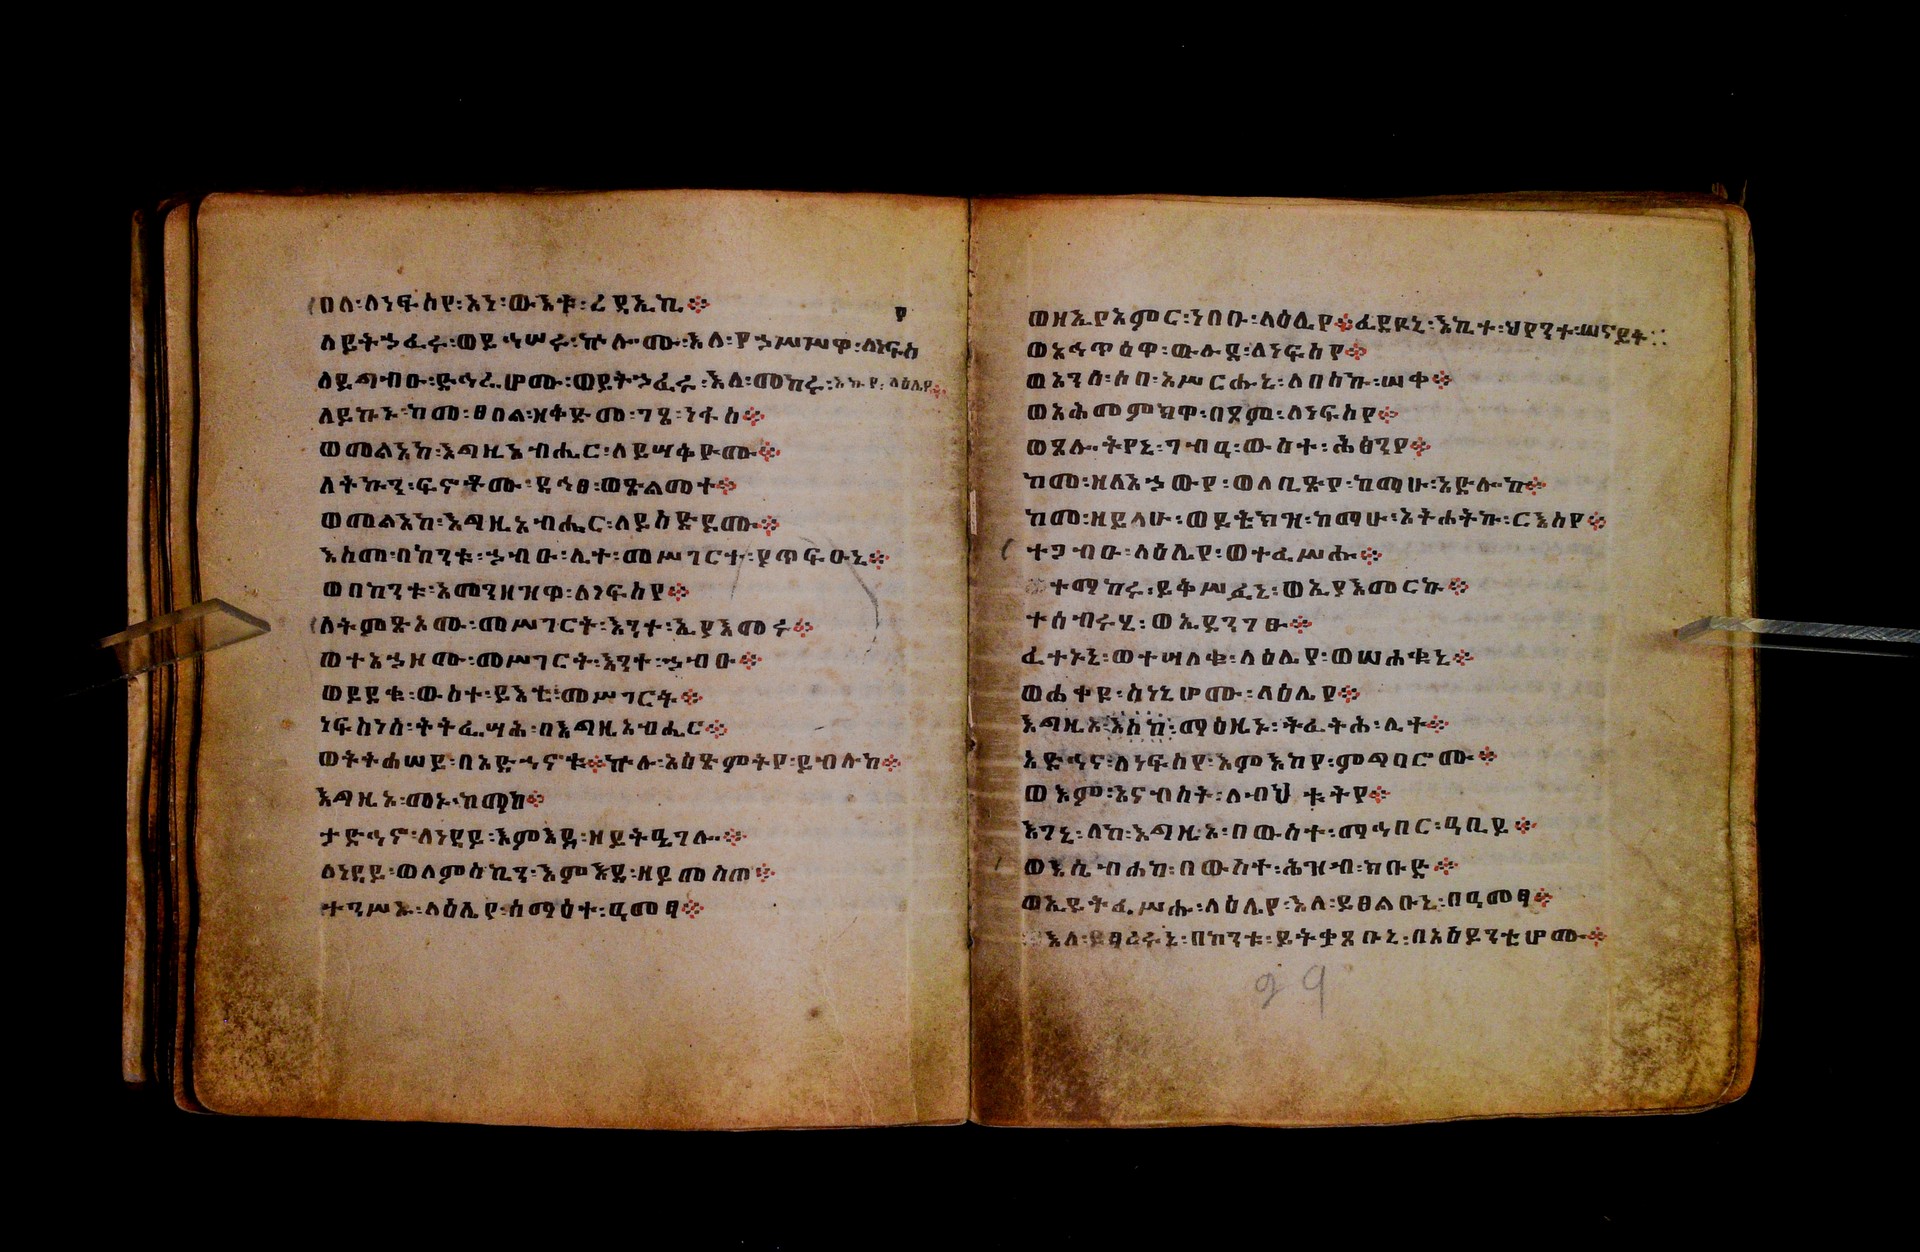 በላ፡ለነፍስየ፡አነ፡ውእቱ፡ረዳኢኪ፨
ለይትኃፈሩ፡ወይኅሠሩ፡ኵሎሙ፡እለ፡የኃሥሥዋ፡ለነፍስየ
ለይግብኡ፡ድኅሬሆሙ፡ወይትኃፈሩ፡እለ፡መከሩ፡እኩየ፡ላዕሌየ፨
ለይኩኑ፡ከመ፡ፀበል፡ዘቅድመ፡ገጸ፡ነፋስ፨
ወመልአከ፡እግዚአብሔር፡ለይሣቅዮሙ፨
ለትኩን፡ፍኖቶሙ፡ዳኅፀ፡ወጽልመተ፨
ወመልአከ፡እግዚአብሔር፡ለይስድዶሙ፨
እስመ፡በከንቱ፡ኃብኡ፡ሊተ፡መሥገርተ፡ያጥፍኡኒ፨
ወበከንቱ፡አመንዘዝዋ፡ለነፍስየ፨
ለትምጽኦሙ፡መሥገርት፡እንተ፡ኢያእመሩ፨
ወተአኃዞሙ፡መሥገርት፡እንተ፡ኃብኡ፨
ወይደቁ፡ውስተ፡ይእቲ፡መሥገርት፨
ነፍስነሰ፡ትትፌሣሕ፡በእግዚአብሔር፨
ወትትሐሠይ፡በአድኅኖቱ፨ኵሉ፡አዕጽምትየ፡ይብሉከ፨
እግዚኦ፡መኑ፡ከማከ፨
ታድኅኖ፡ለነዳይ፡እምእደ፡ዘይትዔገሎ፨
ለነዳይ፡ወለምስኪን፡እምእደ፡ዘይመስጦ፨
ተንሥኡ፡ላዕሌየ፡ሰማዕተ፡ዓመፃ፨
ወዘኢያአምር፡ነበቡ፡ላዕሌየ፨ፈደዩኒ፡እኪተ፡ህየንተ፡ሠናይት፨
ወአኅጥዕዋ፡ውሉደ፡ለነፍስየ፨
ወአንሰ፡ሶበ፡አሥርሑኒ፡ለበስኩ፡ሠቀ፨
ወአሕመምክዋ፡በጾም፡ለነፍስየ፨
ወጸሎትየኒ፡ገብአ፡ውስተ፡ሕፅንየ፨
ከመ፡ዘለእኁውየ፡ወለቢጽየ፡ከማሁ፡አድሎኩ፨
ከመ፡ዘይላሁ፡ወይቴክዝ፡ከማሁ፡አትሐትኩ፡ርእስየ፨
ተጋብኡ፡ላዕሌየ፡ወተፈሥሑ፨
ተማከሩ፡ይቅሥፈኒ፡ወኢያእመርኩ፨
ተሰብሩሂ፡ወኢደንገፁ፨
ፈተኑኒ፡ወተሣለቁ፡ላዕሌየ፡ወሠሐቁኒ፨
ወሐቀዩ፡ስነኒሆሙ፡ላዕሌየ፨
እግዚኦ፡እስከ፡ማዕዜኑ፡ትፈትሕ፡ሊተ፨
አድኅና፡ለነፍስየ፡እምእከየ፡ምግባሮሙ፨
ወእም፡አናብስት፡ለብህቱትየ፨
እገኒ፡ለከ፡እግዚኦ፡በውስተ፡ማኅበር፡ዓቢይ፨
ወእሴብሐከ፡በውስተ፡ሕዝብ፡ክቡድ፨
ወኢይትፌሥሑ፡ላዕሌየ፡እለ፡ይፀልኡኒ፡በዓመፃ፨
እለ፡ይፃረሩኒ፡በከንቱ፡ይትቃጸቡኒ፡በአዕይንቲሆሙ፨
29